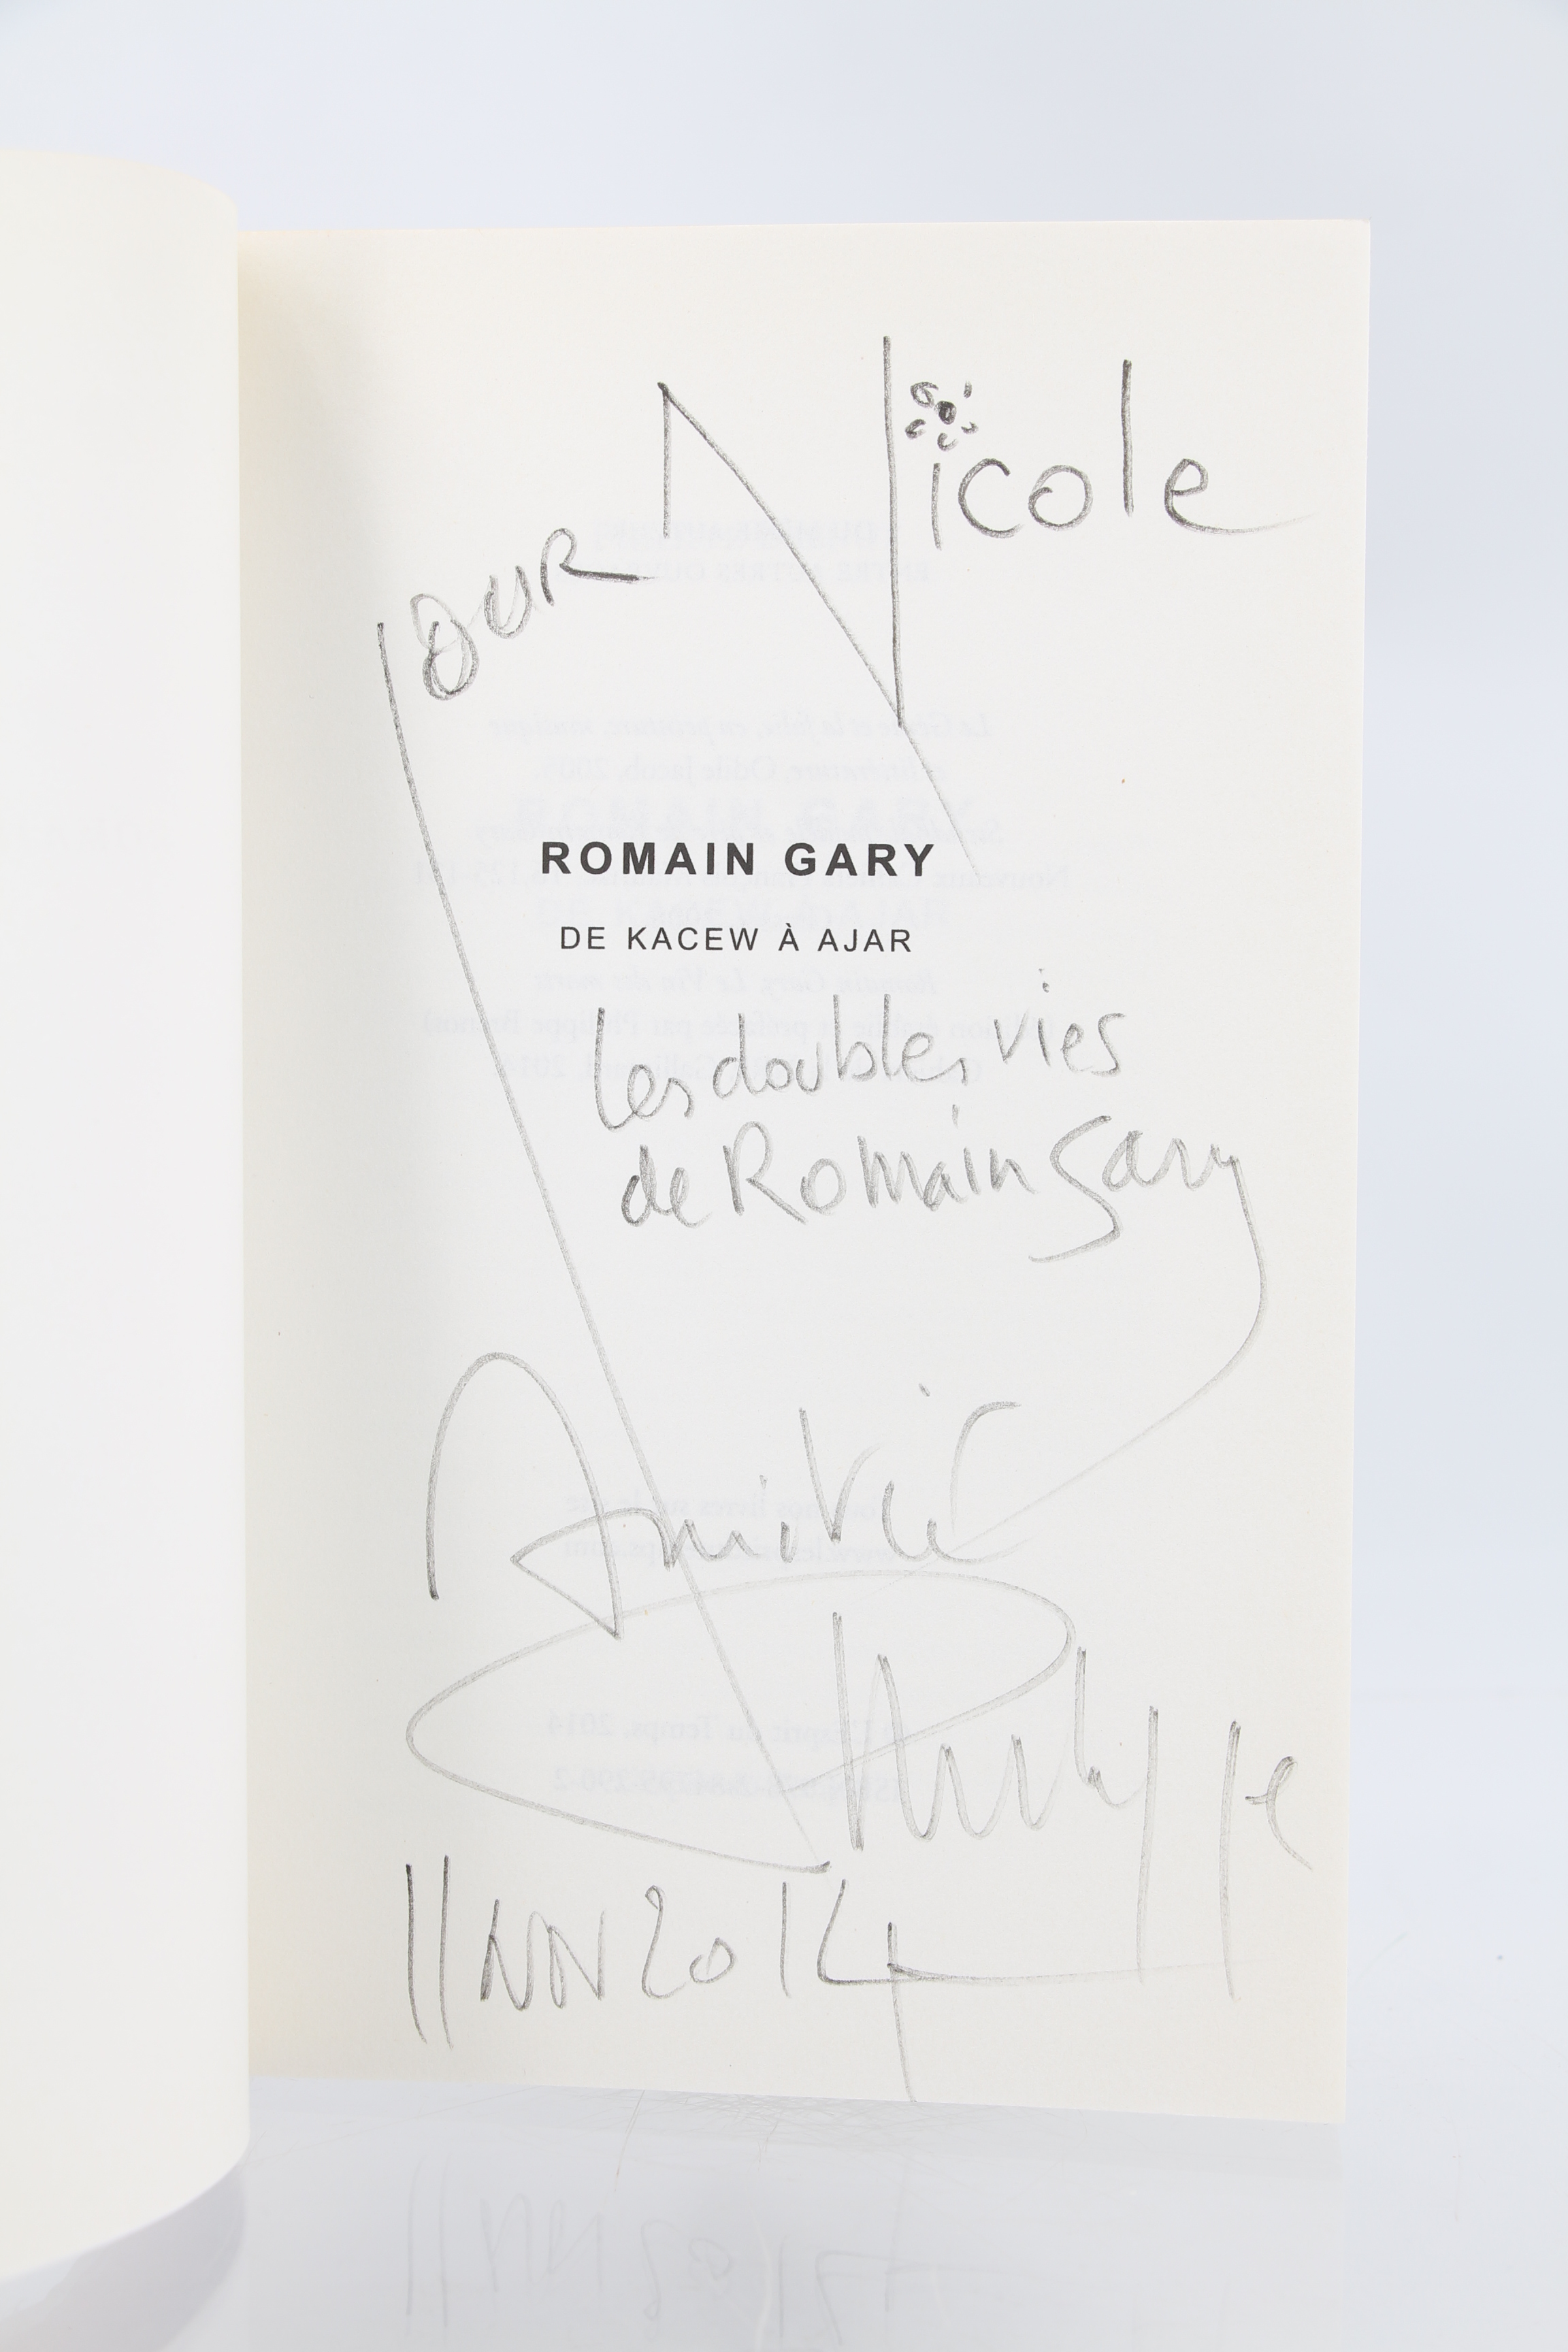 Pour Nicole
ROMAIN GARY
DE KACEW À AJAR
Les doubles vies
de Romain Gary
Amitié
Philippe
11 NOV 2014